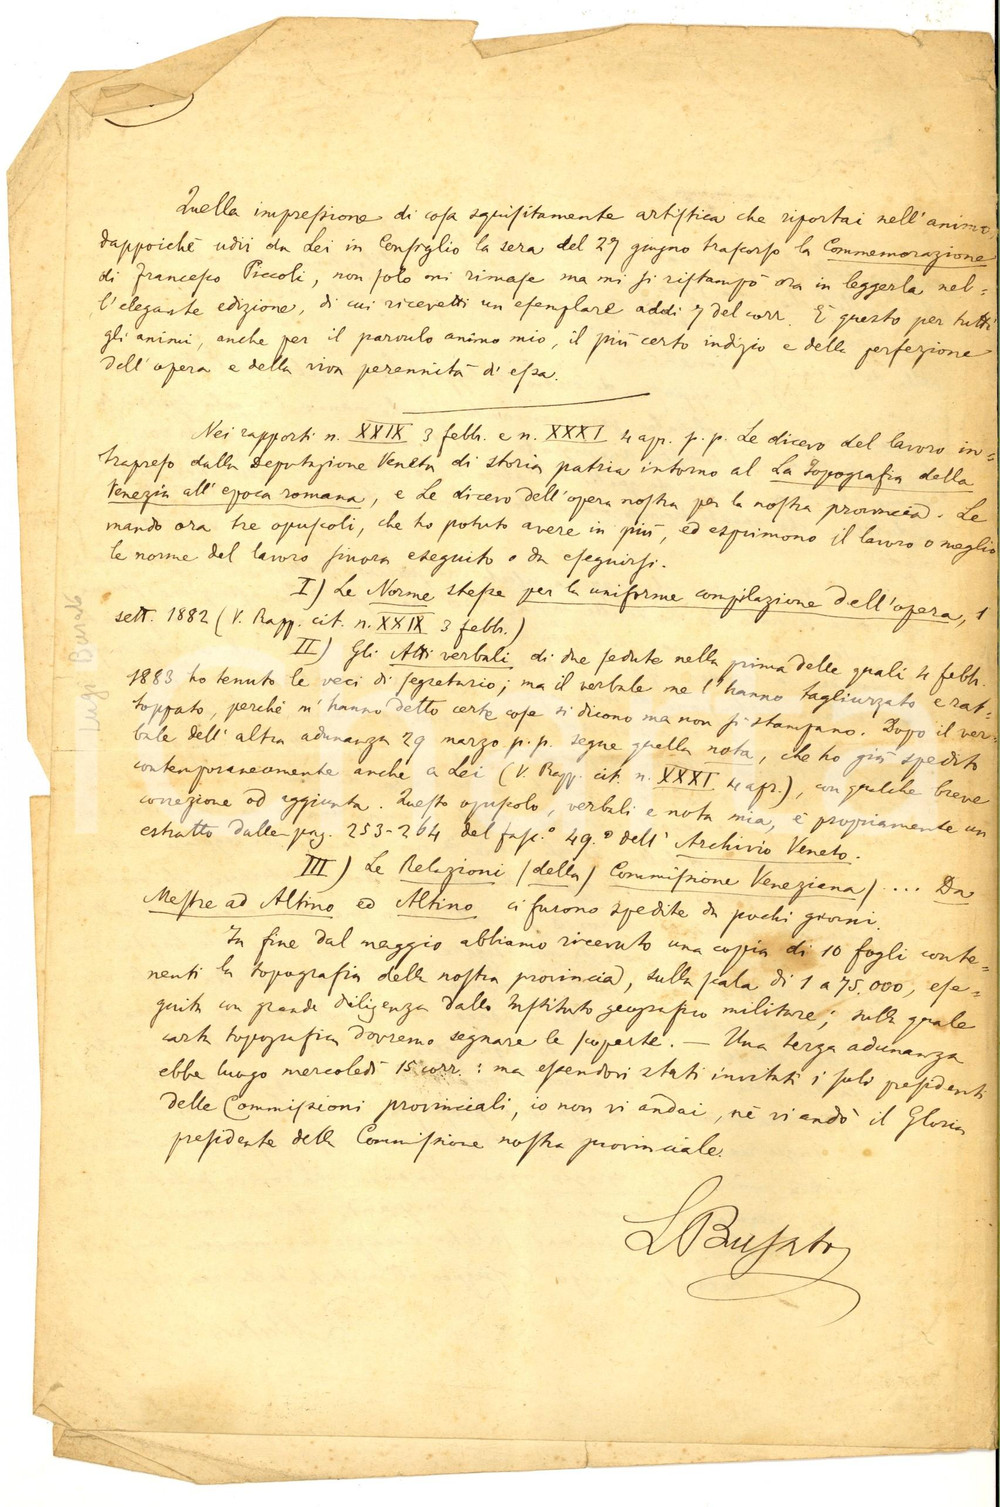 Quella impressione di cosa squisitamente artistica che riportai nell'animo,
dappoichè udii da Lei in Consiglio la sera del 27 giugno trascorso la Commemorazione
di Francesco Piccoli, non solo mi rimase ma mi si ristampò ora in leggerla nel=
l'elegante edizione, di cui ricevetti un esemplare addì 7 del corr. E questo per tutti
gli animi, anche per il parvulo animo mio, il più certo indizio e della perfezione
dell'opera e della viva perennità di essa.
Nei rapporti n. XXIX 3 febb. e n. XXXI 4 apr. p. p. Le dicevo del lavoro in=
trapreso dalla Deputazione Veneta di storia patria intorno al La Topografia della
Venezia all'epoca romana, e Le dicevo dell'opera nostra per la nostra provincia. Le
mando ora tre opuscoli, che ho potuto avere in più, ed esprimono il lavoro o meglio
le norme del lavoro finora eseguito o da eseguirsi.
I) Le Norme stesse per la uniforme compilazione dell'opera, 1
sett. 1882 (V. Rapp. cit. n. XXIX 3 febb.)
II) Gli Atti verbali di due sedute nella prima delle quali 4 febb.
1883 ho tenuto le veci di segretario; ma il verbale me l'hanno tagliuzzato e rat=
toppato, perchè m'hanno detto certe cose si dicono ma non si stampano. Dopo il ver=
bale dell'altra adunanza 29 marzo p. p. segue quella nota, che ho già spedito
contemporaneamente anche a Lei (V. Rapp. cit. n. XXXI 4 apr.), con qualche breve
correzione od aggiunta. Questo opuscolo, verbali e nota mia, è propriamente un
estratto dalle pag. 253-264 del fasc.° 49.° dell'Archivio Veneto.
III) Le Relazioni (della) Commissione Veneziana) .... Da
Mestre ad Altino ed Altino ci furono spedite da pochi giorni.
In fine dal maggio abbiamo ricevuto una copia di 10 fogli conte=
nenti la topografia della nostra provincia, sulla scala di 1 a 75.000, ese=
guita con grande diligenza dallo Instituto geografico militare; sulla quale
carta topografica dovremo segnare le scoperte. — Una terza adunanza
ebbe luogo mercoledì 15 corr.: ma essendovi stati invitati i soli presidenti
delle Commissioni provinciali, io non vi andai, nè vi andò il Gloria
presidente della Commissione nostra provinciale.
L Busato
Luigi Busato